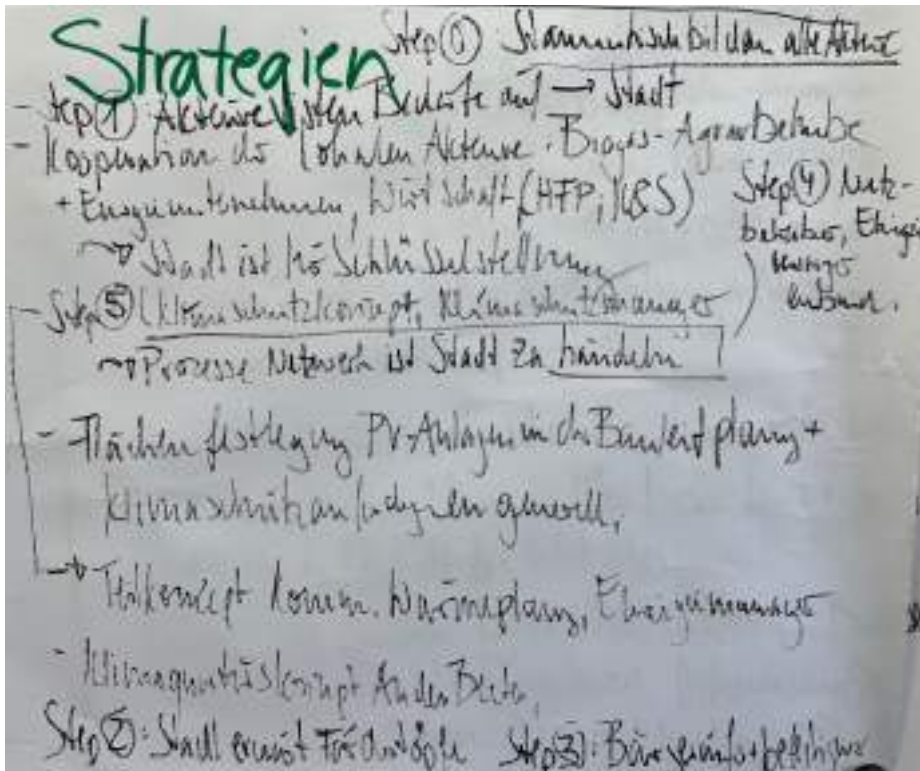 Strategien
Step ⓪ Stammtisch bilden alle Akteure
- Step ① Akteure Bedarfe auf → Stadt
- Kooperation der lokalen Akteure: Biogas-Agrarbetriebe
+ Energieunternehmen, Wirtschaft (HFP, K&S)
Stadt ist in Schlüsselstellung
Step ④ Netz-
betreiber,
- Step ⑤ Klimaschutzkonzept, Klimaschutzmanager
Prozesse Netzwerk ist Stadt zu händeln
- Flächenfestlegung PV-Anlagen in der Bauleitplanung +
Klimaschutz generell,
→ Teilkonzept komm. Wärmeplanung, Energiemanager
- Klimaquartierskonzept
Step ②: Stadt Fördertöpfe Step ③: Bürgerinfo +